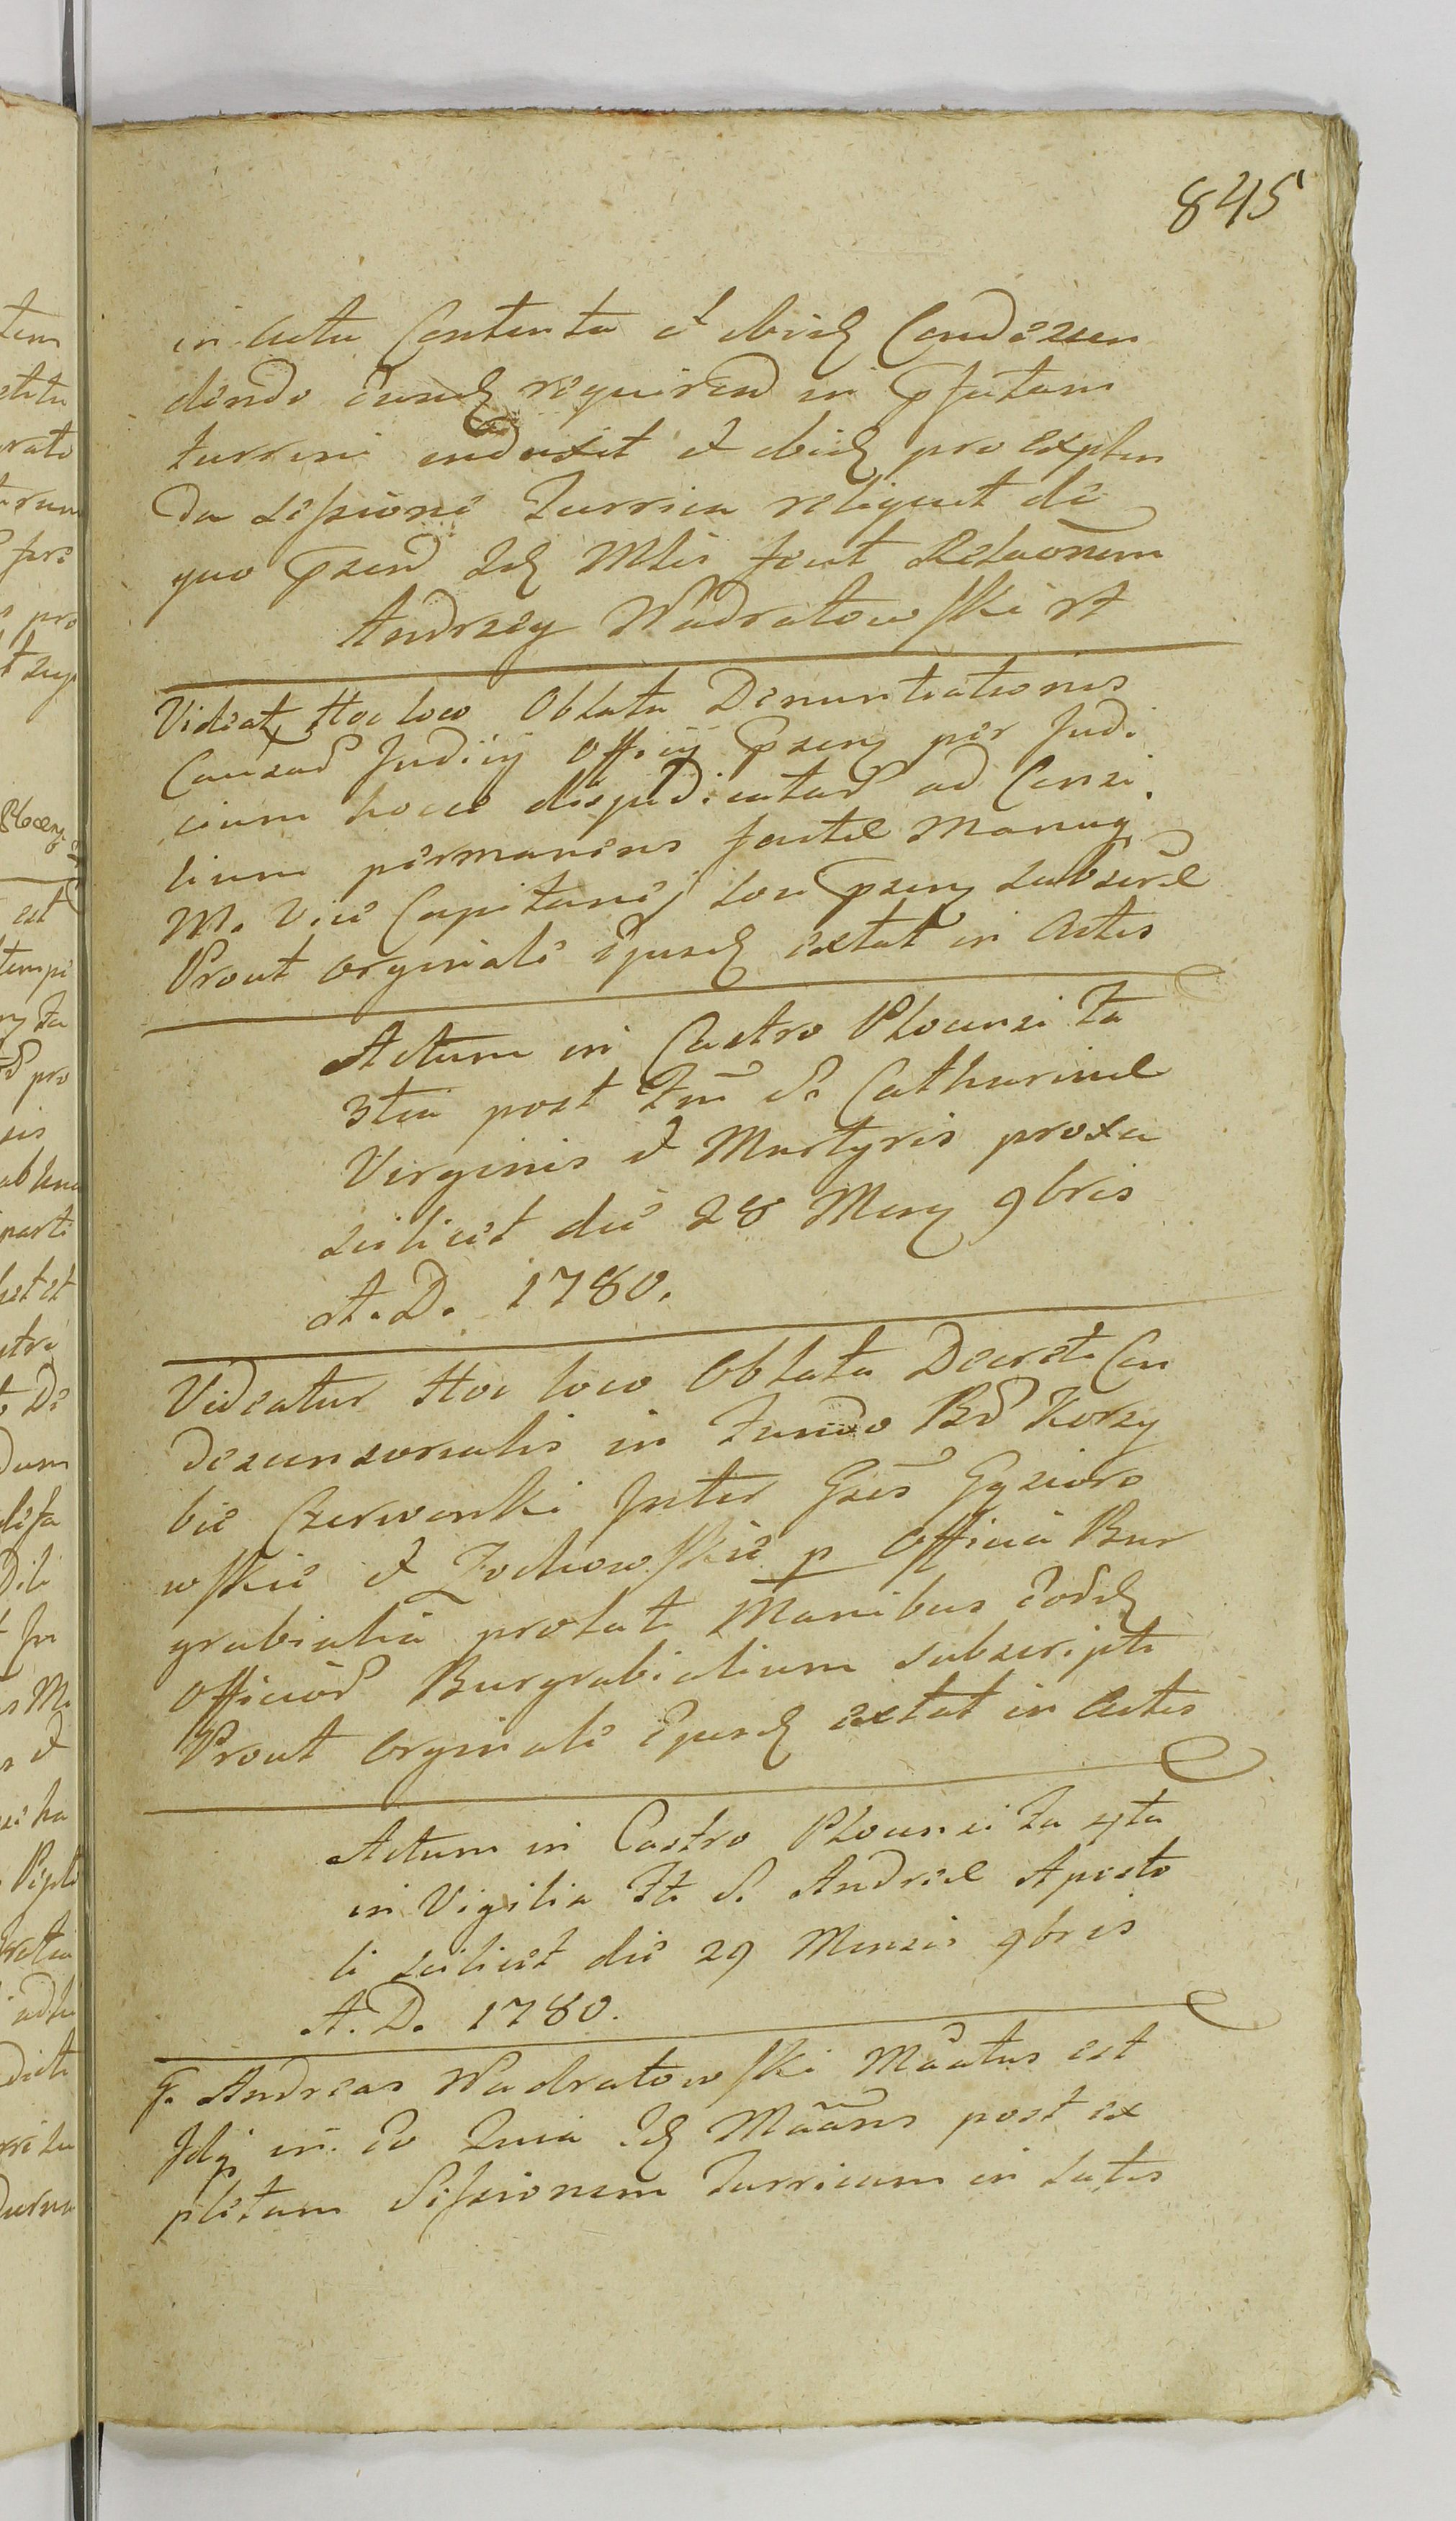 845
in Actu Contenta et ibidq Condescen
dendo eundq requirend in pfatam
turrim induxit et ibidq pro explen
da Sessione Turrica reliquit de
quo pnsed Idq Mtlis fecit Relaonem
Andrzey Nadratowski A
Videat Hoc loco Oblata Denuntiationis
Causad Judicij Officij pnseng per Judi
cium hocce disjudicatad ad Consi
lium permanens factae Manug
M. Vice Capitanej loci pnseng subscrae
Prout orginale Ejusdq extat in Actis
Actum in Castro Plocensi Fa
3tia post Fm S. Catharinae
Virginis et Martyris proxa
scilicet die 28 Meng 9bris
A. D. 1780.
Videatur Hoc loco Oblata Decreti Con
descensorialis in Fundo Bd Korzy
bie Czerwonki Inter Gses Gąsioro
wskie et Żochowskie p Officia Bur
grabialia prolati Manibus eordq
Officiod Burgrabialium subscripti
Prout orginale Ejusdq extat in Actis
Actum in Castro Plocensi Fa 4ta
in Vigilia Fti S. Andreae Aposto
li scilicet die 29 Mensis 9bris
A. D. 1780.
G. Andreas Nadratowski Maatus est
Idq in eo Quia Idq Maans post ex
pletam Sessionem Turricam in satis